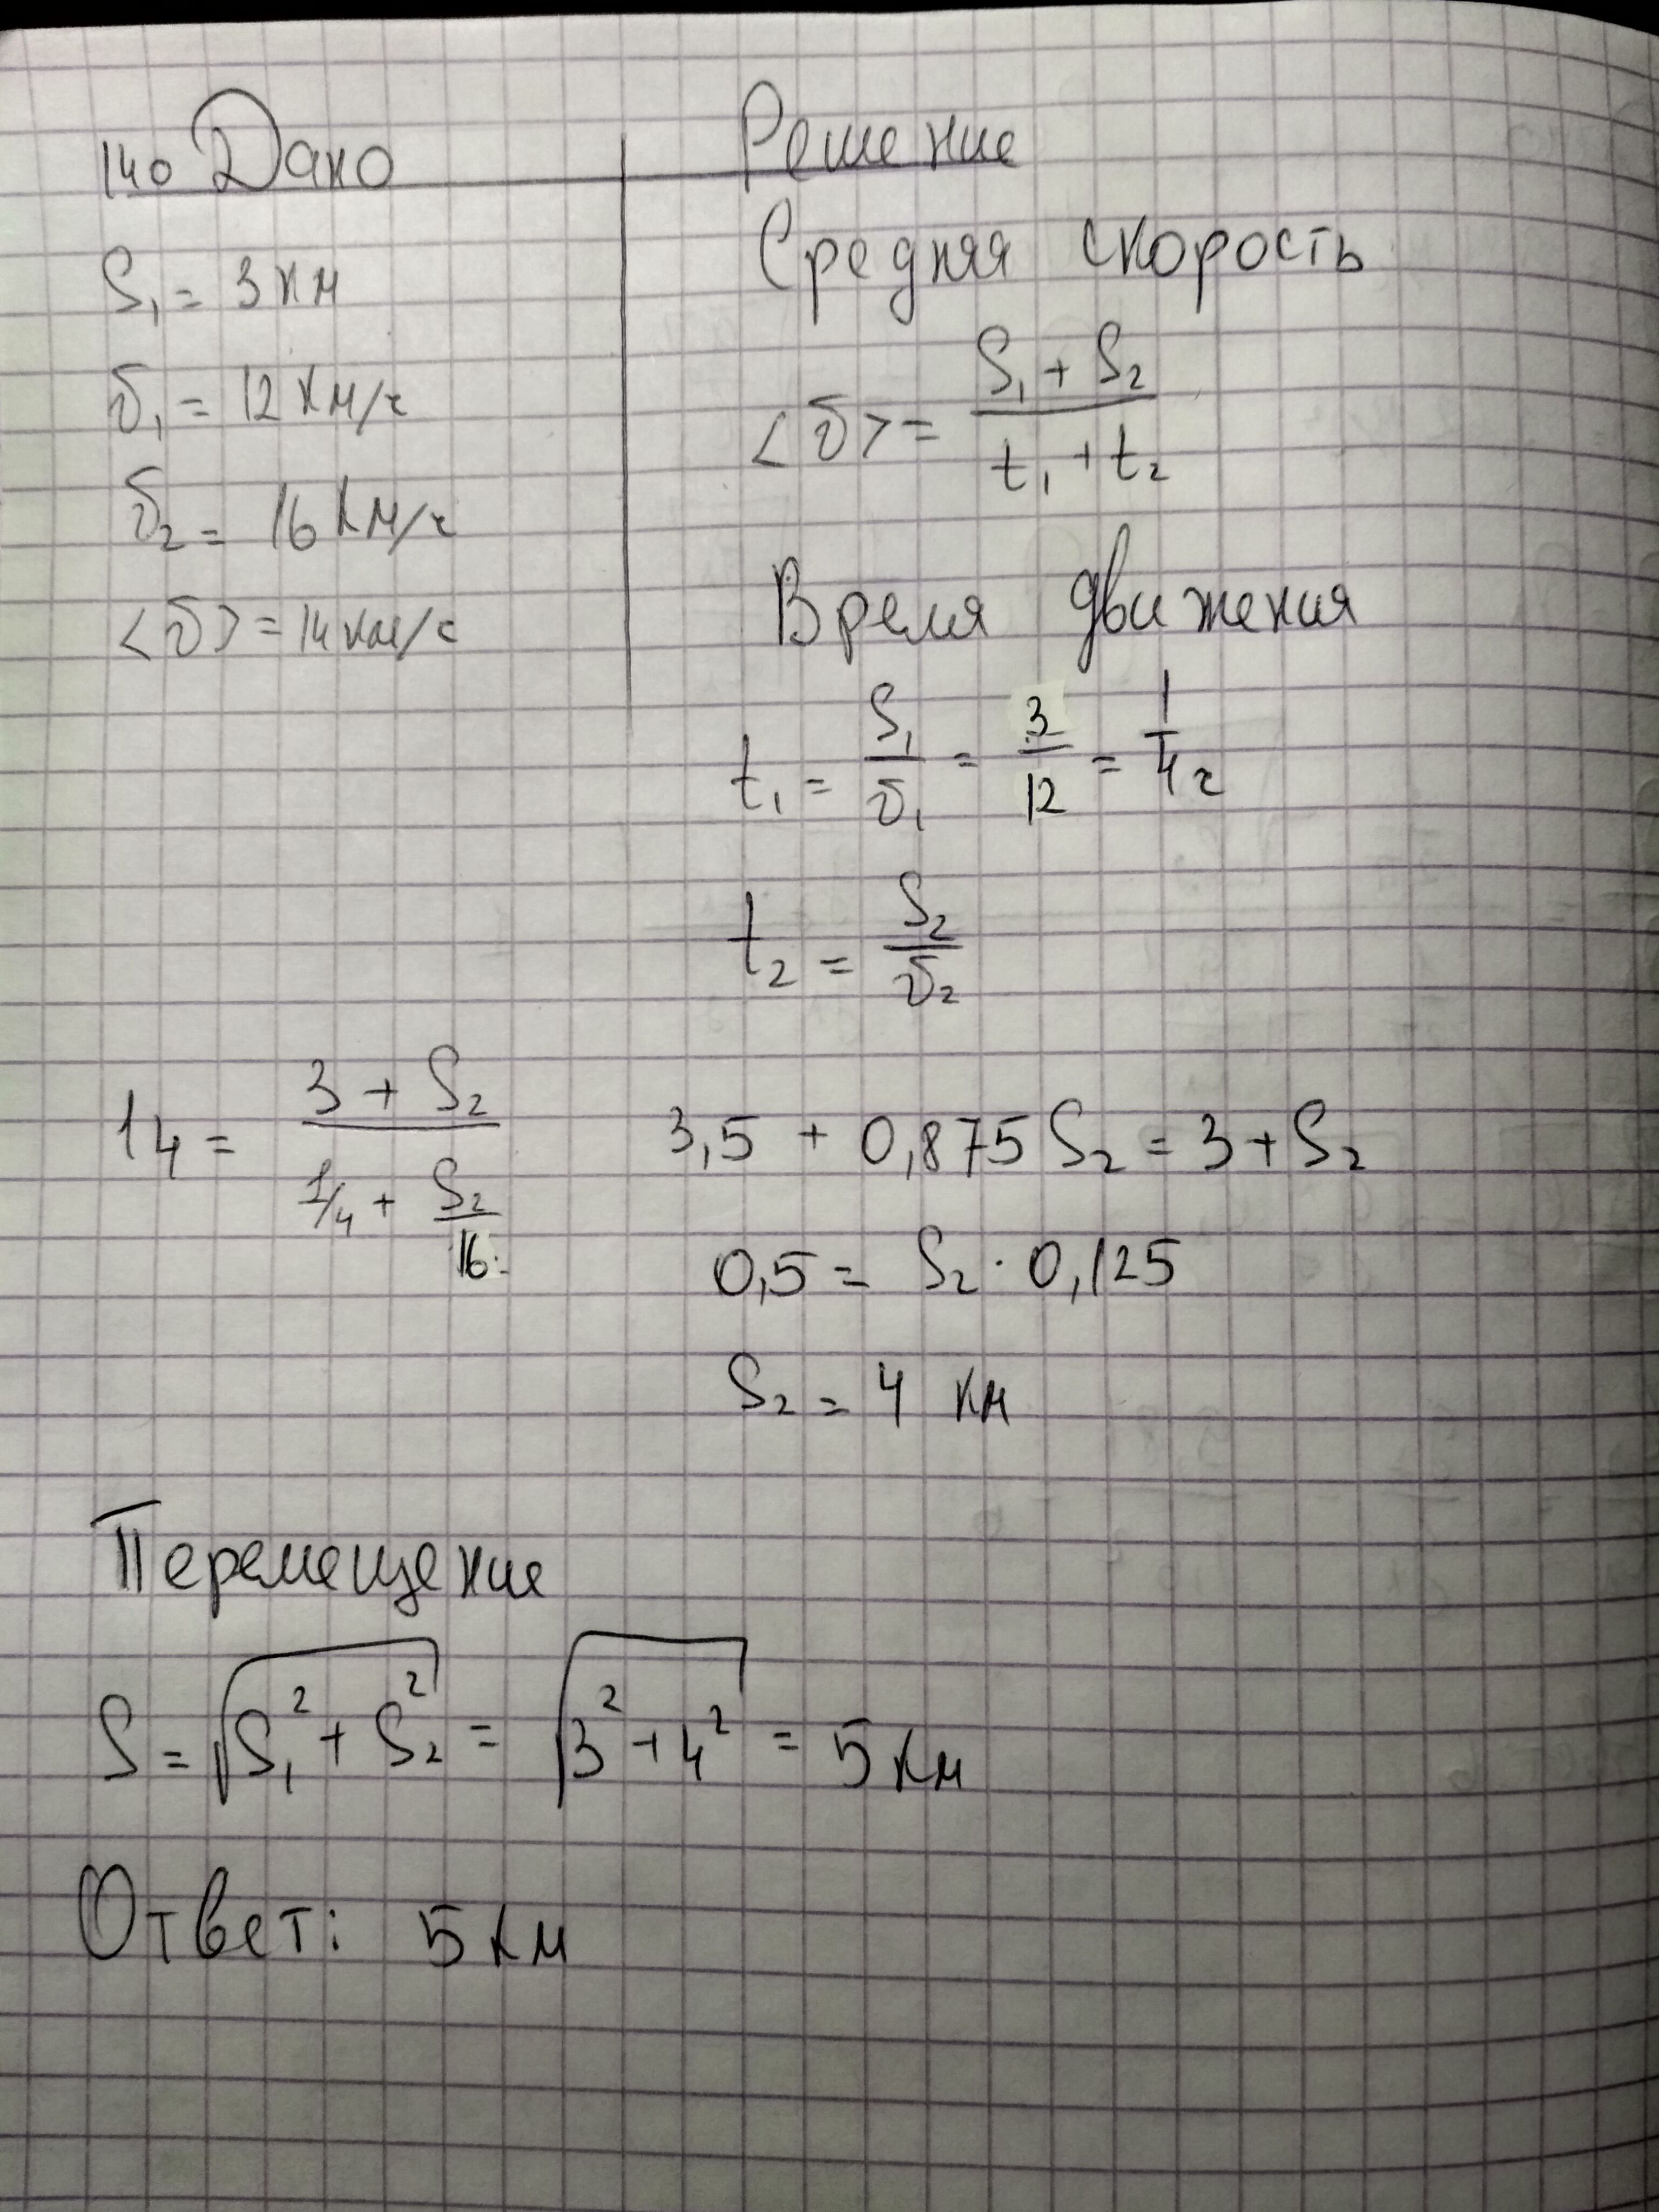 140 Дано
S₁ = 3 км
υ₁ = 12 км/ч
υ₂ = 16 км/ч
<υ> = 14 км/ч
Решение
Средняя скорость
<υ> = (S₁ + S₂)/(t₁ + t₂)
Время движения
t₁ = S₁/υ₁ = 3/12 = 1/4 ч
t₂ = S₂/υ₂
14 = (3 + S₂)/(1/4 + S₂/16)
3,5 + 0,875 S₂ = 3 + S₂
0,5 = S₂ · 0,125
S₂ = 4 км
Перемещение
S = √(S₁² + S₂²) = √(3² + 4²) = 5 км
Ответ: 5 км